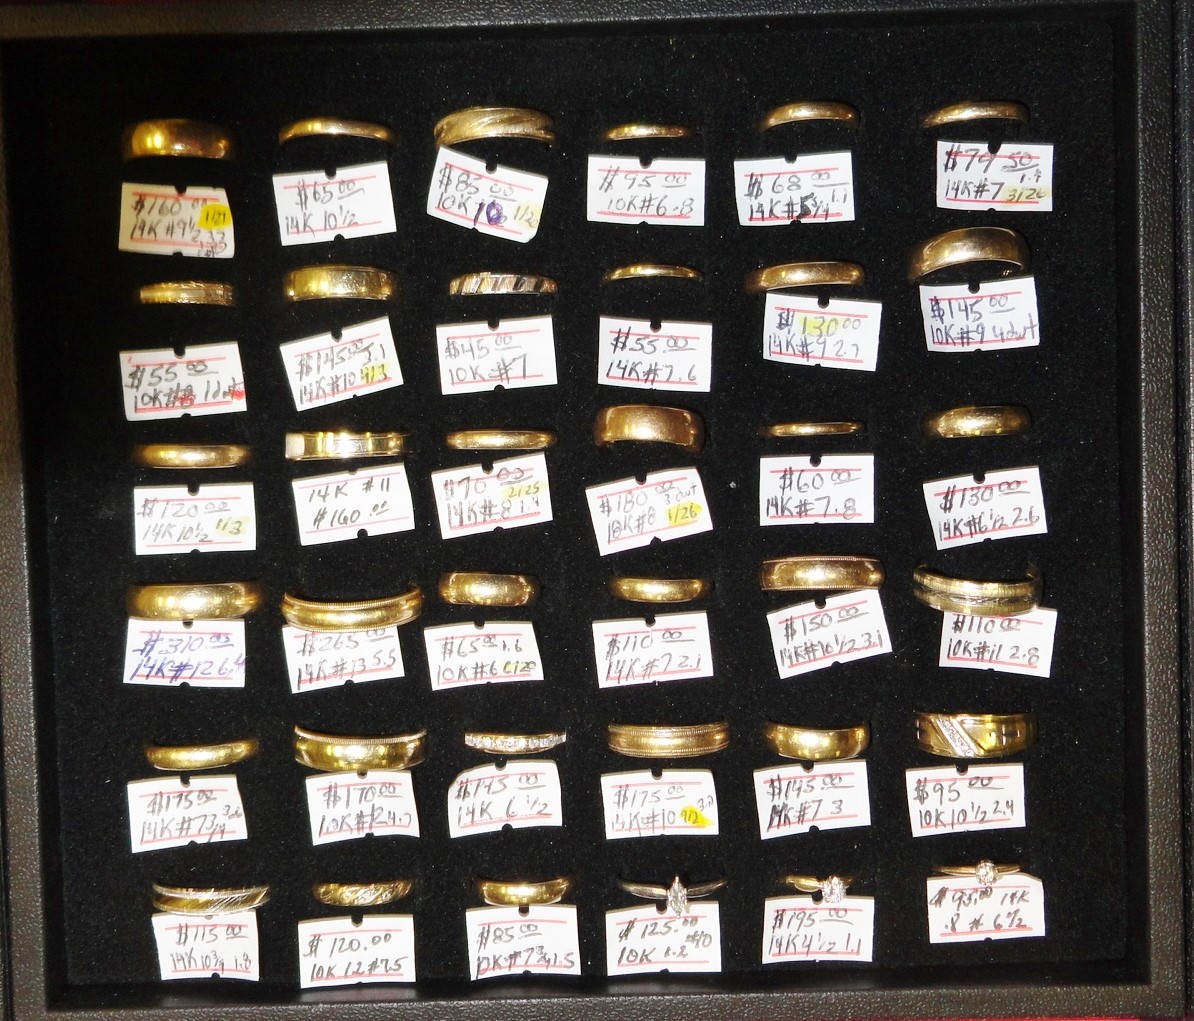 $160.00 1/21
14K #9½
$65.00
14K 10½
$85.00
10K 10
$95.00
10K #6 .8
$68.00
14K #5¾ 1.1
$79.50
14K #7 3/26
$55.00
10K #8 1dwt
$145.00 3.1
14K #10
$45.00
10K #7
$55.00
14K #7 .6
$130.00
14K #9 2.7
$145.00
10K #9 4dwt
$120.00
14K 10½
14K #11
$160.00
$70.00
14K #8 1.4
$180.00 3dwt
18K #8 1/26
$60.00
14K #7 .8
$130.00
14K #6½ 2.6
$310.00
14K #12 6.4
$265.00
14K #13 5.5
$65.00 1.6
10K #6
$110.00
14K #7 2.1
$150.00
14K #10½ 3.1
$110.00
10K #11 2.8
$175.00
14K #7¾ 3.6
$170.00
10K #12
$145.00
14K 6½
$175.00
14K #10 9/2
$145.00
14K #7 3
$95.00
10K 10½ 2.4
$115.00
14K 10¾ 1.8
$120.00
10K 1.2 #7.5
$85.00
10K #7¾ 1.5
$125.00
10K 1.2
$195.00
14K 4½ 1.1
$95.00 14K
.8 # 6½